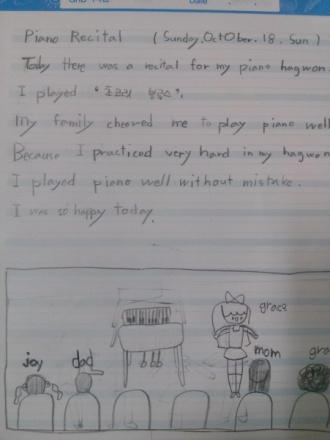 Piano Recital (Sunday, OctOber. 18. Sun)
Today there was a recital for my piano hagwon.
I played
My family cheered me to play piano well
Because I practiced very hard in my hagwon
I played piano well without mistake.
I was so happy today.
grace
joy dad mom gra